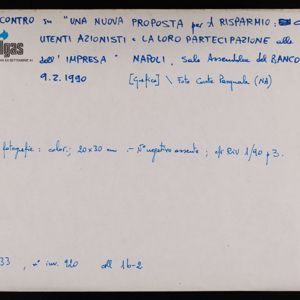 CONTRO su "UNA NUOVA PROPOSTA per il RISPARMIO:
UTENTI AZIONISTI e LA LORO PARTECIPAZIONE alle
dell' IMPRESA" NAPOLI, Sala Assemblee del BANCO
9.2.1990 [Grafica] \ Foto Conte Pasquale (NA)
gas
fotografie: color.; 20x30 cm .- N° negativo assente; cfr RIV 1/90 p3.
33, n° inv. 920 all 16-2